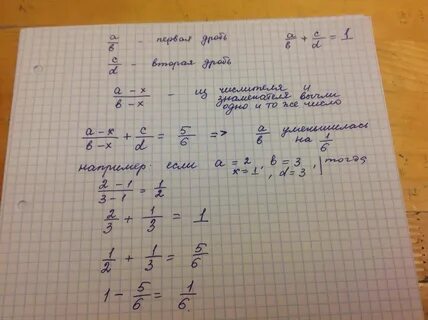 a/в - первая дробь a/в + c/d = 1
c/d - вторая дробь
a-x/в-x - из числителя и знаменателя вычли одно и то же число
a-x/в-x + c/d = 5/6 => a/в уменьшилась на 1/6
например: если a = 2, в = 3, x = 1, d = 3, тогда
2-1/3-1 = 1/2
2/3 + 1/3 = 1
1/2 + 1/3 = 5/6
1 - 5/6 = 1/6.